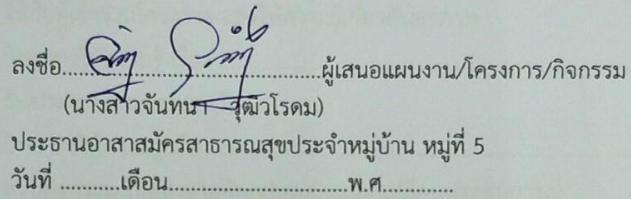 ลงชื่อ................................................ผู้เสนอแผนงาน/โครงการ/กิจกรรม
(นางสาวจันทนา วุฒิวโรดม)
ประธานอาสาสมัครสาธารณสุขประจำหมู่บ้าน หมู่ที่ 5
วันที่ ...........เดือน.................................พ.ศ.............